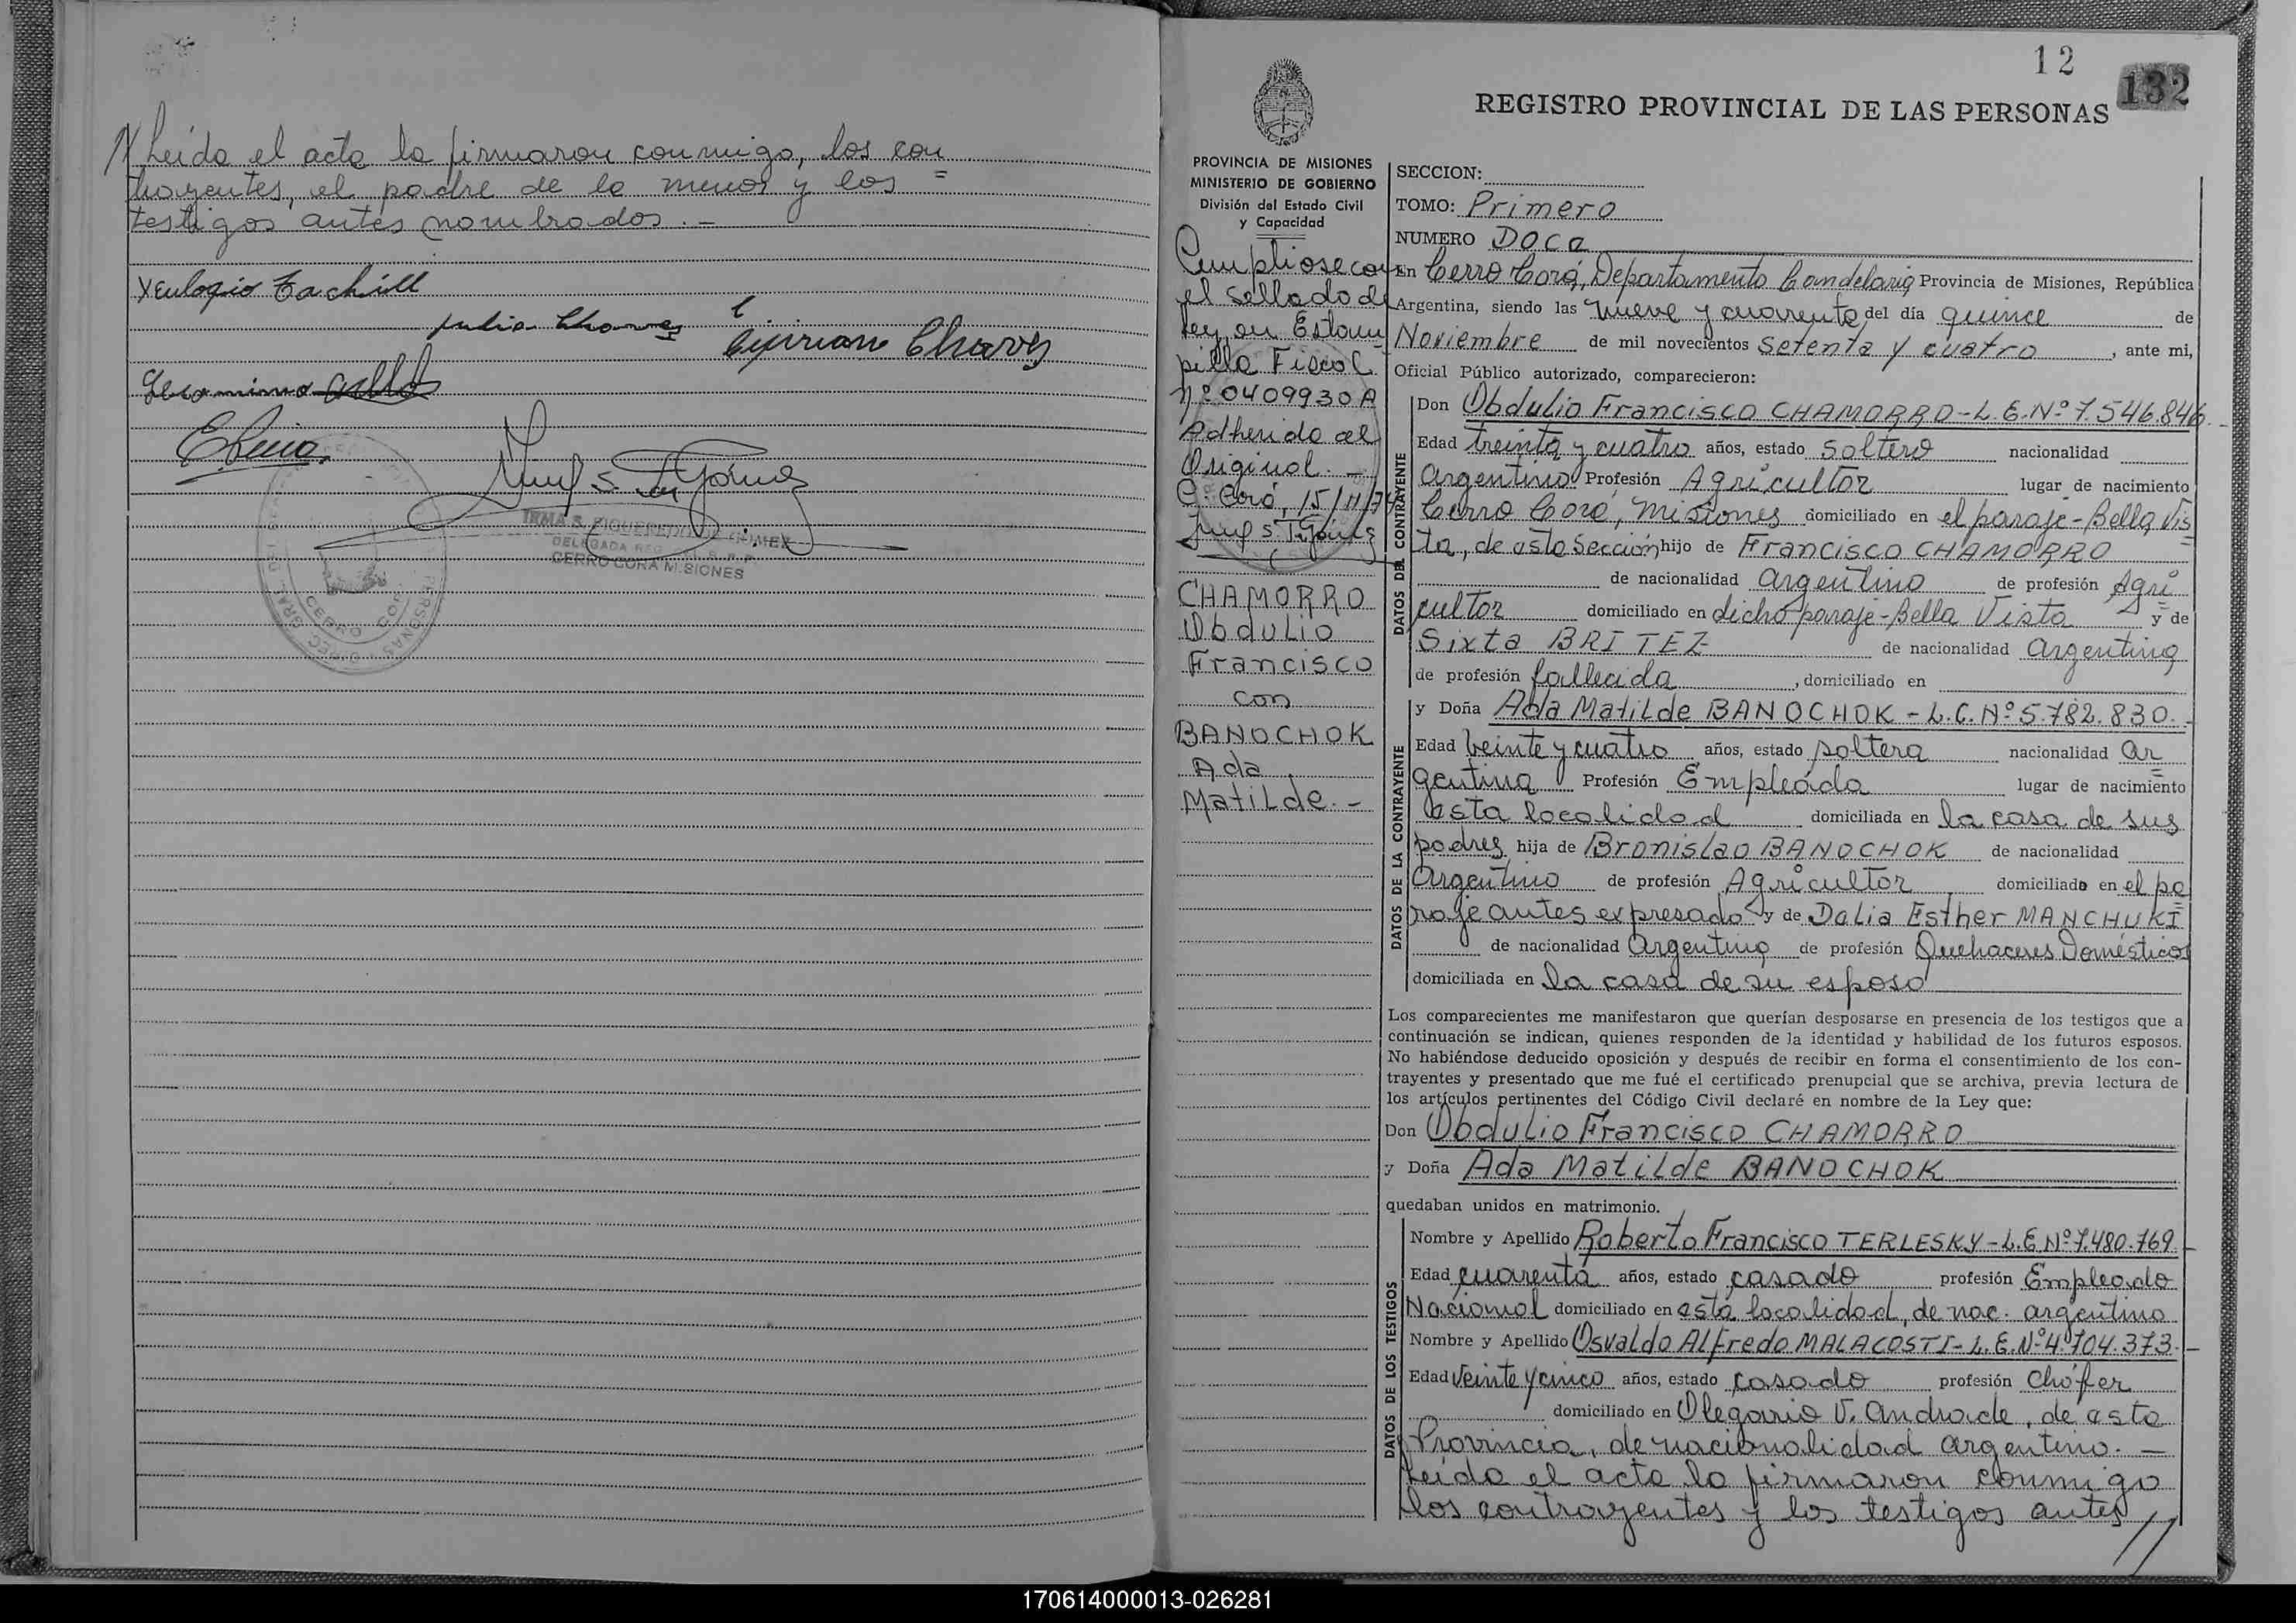 // Leída el acta la firmaron conmigo, los con
trayentes, el padre de la menor y los =
testigos antes nombrados. -
X Eulogio
Julia Chavez
Cipriano Chavez
Geronimo
IRMA S. FIGUEREDO DE GOMEZ
DELEGADA REG.
CERRO CORA MISIONES
12
132
REGISTRO PROVINCIAL DE LAS PERSONAS
PROVINCIA DE MISIONES
MINISTERIO DE GOBIERNO
División del Estado Civil
y Capacidad
Cumpliose con
el sellado de
ley en Estam
pilla Fiscal
Nº 0409930A
Adherida al
Original. -
C. Corá, 15/11/74
CHAMORRO
Obdulio
Francisco
con
BANOCHOK
Ada
Matilde. -
SECCION:
TOMO: Primero
NUMERO DOCE
En Cerro Corá, Departamento Candelaria Provincia de Misiones, República
Argentina, siendo las nueve y cuarenta, del día quince de
Noviembre de mil novecientos Setenta y cuatro, ante mi,
Oficial Público autorizado, comparecieron:
DATOS DEL CONTRAYENTE
Don Obdulio Francisco CHAMORRO - L.E. Nº 7.546.846.
Edad treinta y cuatro años, estado soltero nacionalidad
Argentino Profesión Agricultor lugar de nacimiento
Cerro Corá, Misiones domiciliado en el paraje - Bella Vis
ta, de esta Sección hijo de Francisco CHAMORRO
de nacionalidad Argentino de profesión Agri
cultor domiciliado en dicho paraje - Bella Vista y de
Sixta BRITEZ de nacionalidad Argentina
de profesión fallecida, domiciliado en
DATOS DE LA CONTRAYENTE
y Doña Ada Matilde BANOCHOK - L.C. Nº 5.782.830. -
Edad Veinte y cuatro años, estado soltera nacionalidad Ar
gentina Profesión Empleada lugar de nacimiento
esta localidad domiciliada en la casa de sus
padres hija de Bronislao BANOCHOK de nacionalidad
Argentino de profesión Agricultor domiciliado en el pa
raje antes expresado y de Dalia Esther MANCHUKI
de nacionalidad Argentina de profesión Quehaceres Domésticos
domiciliada en la casa de su esposo
Los comparecientes me manifestaron que querían desposarse en presencia de los testigos que a
continuación se indican, quienes responden de la identidad y habilidad de los futuros esposos.
No habiéndose deducido oposición y después de recibir en forma el consentimiento de los con-
trayentes y presentado que me fué el certificado prenupcial que se archiva, previa lectura de
los artículos pertinentes del Código Civil declaré en nombre de la Ley que:
Don Obdulio Francisco CHAMORRO
y Doña Ada Matilde BANOCHOK
quedaban unidos en matrimonio.
DATOS DE LOS TESTIGOS
Nombre y Apellido Roberto Francisco TERLESKY - L.E. Nº 7.480.769. -
Edad cuarenta años, estado casado profesión Empleado
Nacional domiciliado en esta localidad, de nac. argentino
Nombre y Apellido Osvaldo Alfredo MALACOSTI - L.E. Nº 4.704.373. -
Edad Veinte y cinco años, estado casado profesión Chófer
domiciliado en Olegario V. Andrade, de esta
Provincia, de nacionalidad argentino. -
Leída el acta la firmaron conmigo
los contrayentes y los testigos antes //
170614000013-026281